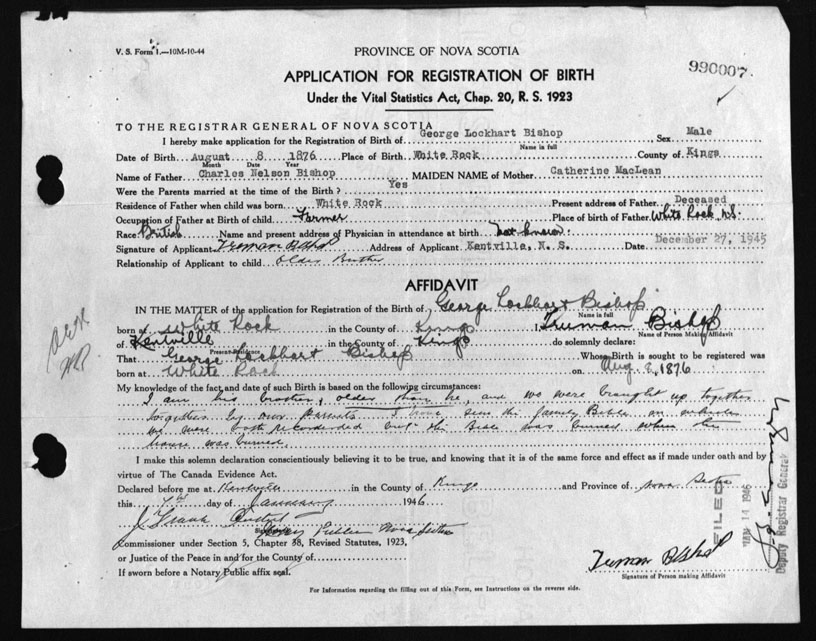 V. S. Form 1.—10M-10-44
PROVINCE OF NOVA SCOTIA
990007
APPLICATION FOR REGISTRATION OF BIRTH
Under the Vital Statistics Act, Chap. 20, R. S. 1923
TO THE REGISTRAR GENERAL OF NOVA SCOTIA
I hereby make application for the Registration of Birth of George Lockhart Bishop Sex Male
Name in full
Date of Birth August 8 1876 Place of Birth White Rock County of Kings
Month Date Year
Name of Father Charles Nelson Bishop MAIDEN NAME of Mother Catherine MacLean
Were the Parents married at the time of the Birth? Yes
Residence of Father when child was born White Rock Present address of Father Deceased
Occupation of Father at Birth of child Farmer Place of birth of Father White Rock N.S.
Race British Name and present address of Physician in attendance at birth Not known
Signature of Applicant Truman Bishop Address of Applicant Kentville, N. S. Date December 27, 1945
Relationship of Applicant to child older Brother
AFFIDAVIT
IN THE MATTER of the application for Registration of the Birth of George Lockhart Bishop
Name in full
born at White Rock in the County of Kings I, Truman Bishop
Name of Person Making Affidavit
of Kentville in the County of Kings do solemnly declare:
Present Residence
That George Lockhart Bishop Whose Birth is sought to be registered was
born at White Rock on Aug. 8, 1876
My knowledge of the fact and date of such Birth is based on the following circumstances:
I am his brother, older than he, and we were brought up together
together by our Parents. I have seen the family Bible in which
we were both recorded but the Bible was burned when the
house was burned.
I make this solemn declaration conscientiously believing it to be true, and knowing that it is of the same force and effect as if made under oath and by
virtue of The Canada Evidence Act.
Declared before me at Kentville in the County of Kings and Province of Nova Scotia
this day of January 1946
J Frank
Notary Public Nova Scotia
Commissioner under Section 5, Chapter 38, Revised Statutes, 1923,
or Justice of the Peace in and for the County of
If sworn before a Notary Public affix seal.
Truman Bishop
Signature of Person making Affidavit
For Information regarding the filling out of this Form, see Instructions on the reverse side.
FILED
JAN 14 1946
Deputy Registrar General